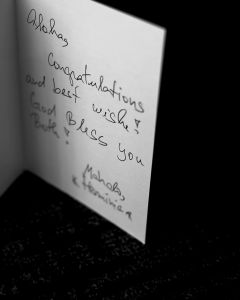 Aloha,
Congratulations
and best wishes!
God Bless you
Both!
Mahalo,